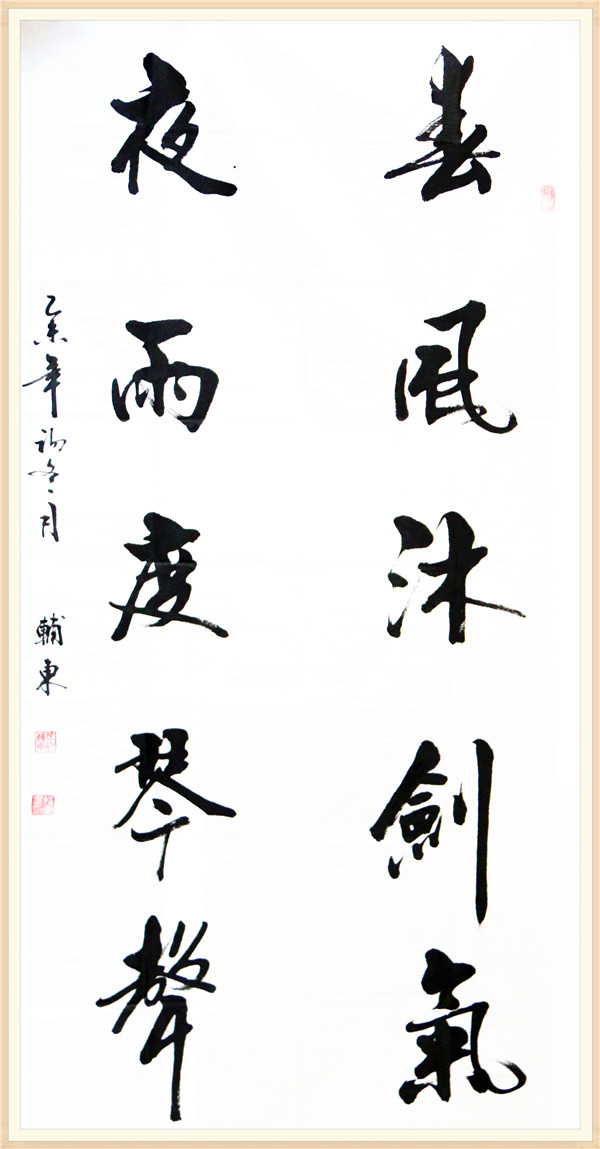 春風沐劍氣
夜雨度琴聲
乙未年初冬月
輔東